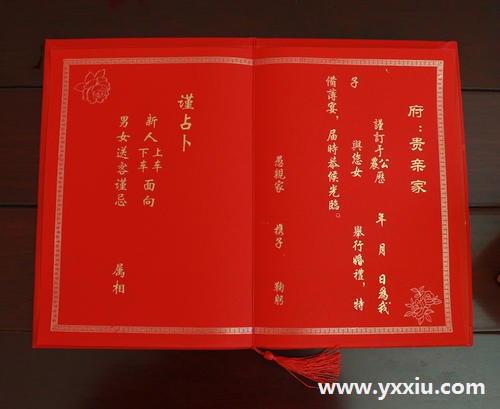 府：贵亲家
謹訂于公历农 年 月 日為我
子 與您女 舉行婚禮，特
備薄宴，届時恭候光臨。
愚親家 携子 鞠躬
谨占卜
新人上车下车面向
男女送客谨忌
属相
www.yxxiu.com